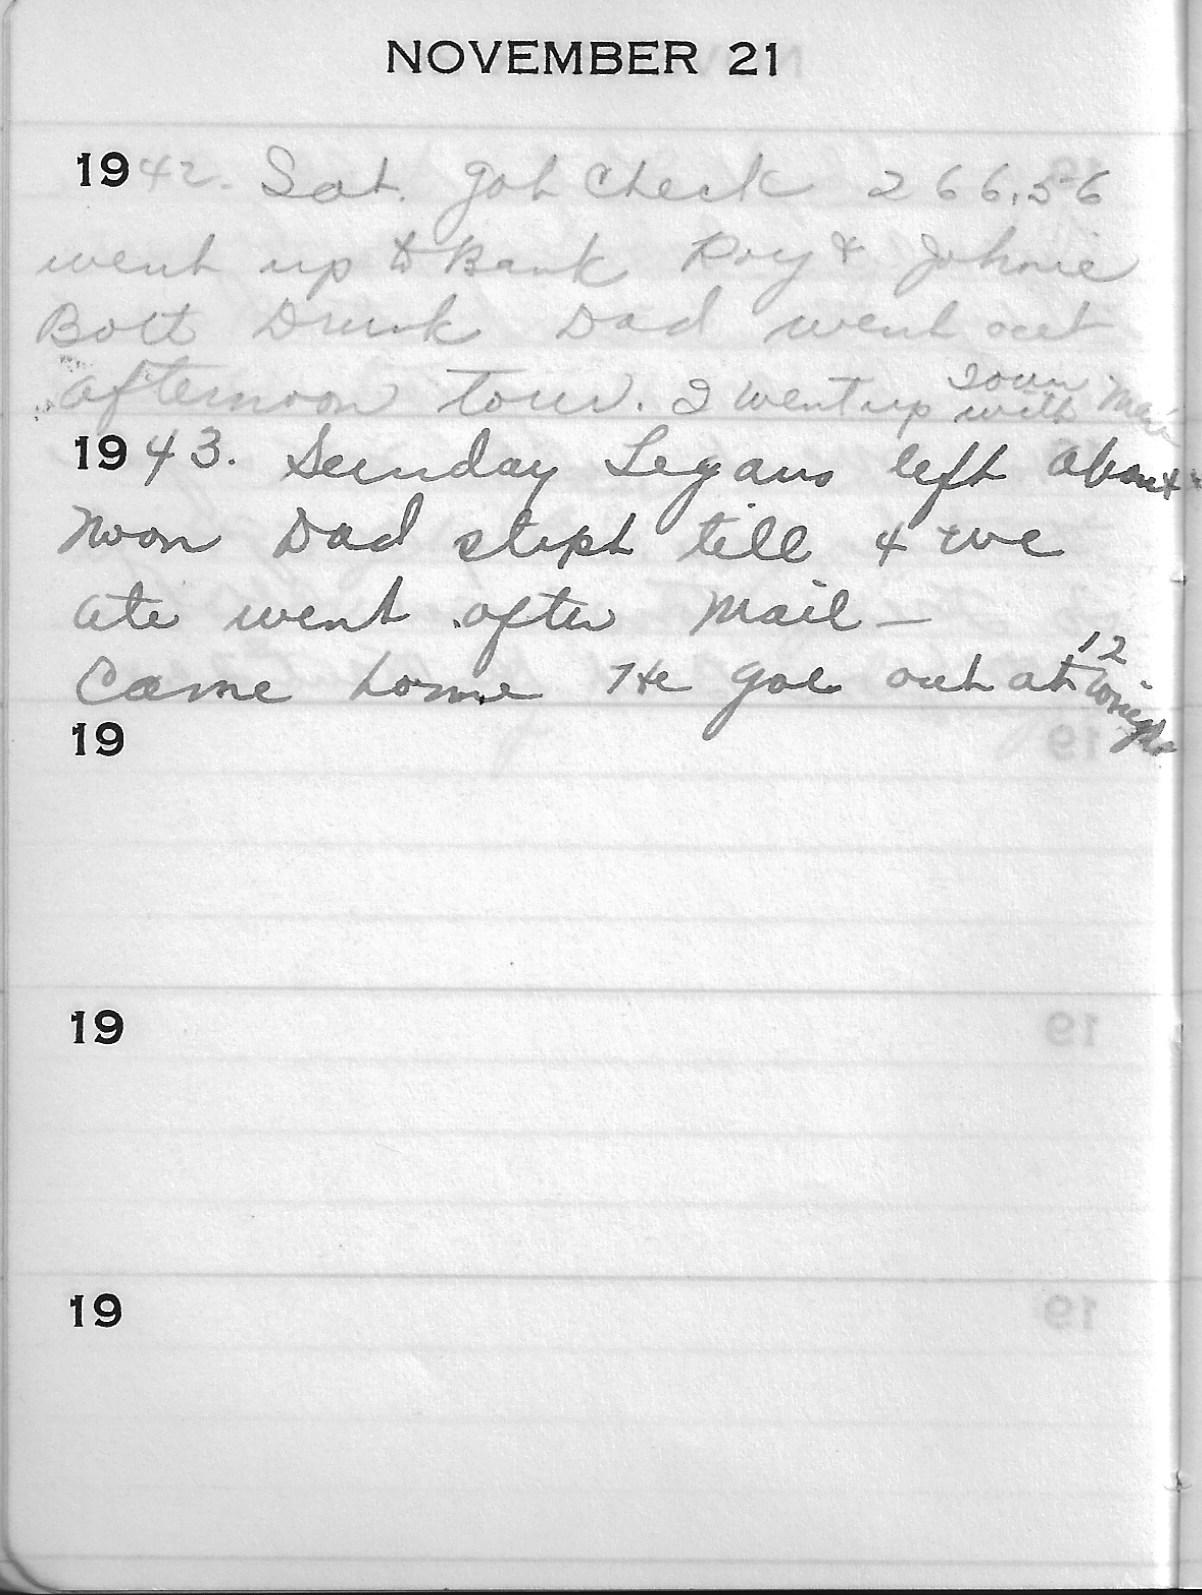 NOVEMBER 21
1942. Sat. got check 266.56
went up to Bank Roy & Johnie
Bott Drunk Dad went out
afternoon tour. I went up town with Mae
1943. Sunday Legans left about
Noon Dad slept till 4 we
ate went after Mail —
Came home He goe out at 12 tonight
19
19
19